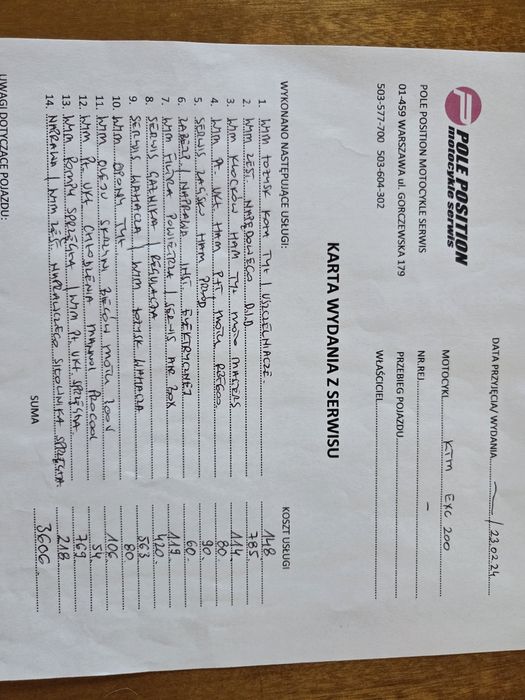 POLE POSITION
motocykle serwis
DATA PRZYJĘCIA/ WYDANIA / 23.02.24
POLE POSITION MOTOCYKLE SERWIS
01-459 WARSZAWA ul. GORCZEWSKA 179
503-577-700 503-604-302
MOTOCYKL KTM EXC 200
NR.REJ –
PRZEBIEG POJAZDU
WŁAŚCICIEL
KARTA WYDANIA Z SERWISU
WYKONANO NASTĘPUJĄCE USŁUGI: KOSZT USŁUGI
1. WYM ŁOŻYSK KOŁA TYŁ / USZCZELNIACZE 148
2. WYM ZEST. NAPĘDOWEGO D.I.D 785
3. WYM KLOCKÓW HAM TYŁ MOTO MASTER 114
4. WYM PŁ. UKŁ HAM P+T MOTUL RBF600 80
5. SERWIS ZACISKU HAM PRZÓD 90
6. ZABEZP / NAPRAWA INST. ELEKTRYCZNEJ 60
7. WYM FILTRA POWIETRZA / SERWIS AIR BOX 119
8. SERWIS GAŹNIKA / REGULACJA 420
9. SERWIS WAHACZA / WYM ŁOŻYSK WAHACZA 563
10. WYM OPONY TYŁ 80
11. WYM OLEJU SKRZYNI BIEGÓW MOTUL 300V 106
12. WYM PŁ. UKŁ CHŁODZENIA MANNOL 54
13. WYM POMPY SPRZĘGŁA / WYM PŁ UKŁ SPRZĘGŁA 769
14. NAPRAWA / WYM ZEST. NAPRAWCZEGO SIŁOWNIKA SPRZĘGŁA 218
SUMA 3606
UWAGI DOTYCZĄCE POJAZDU: